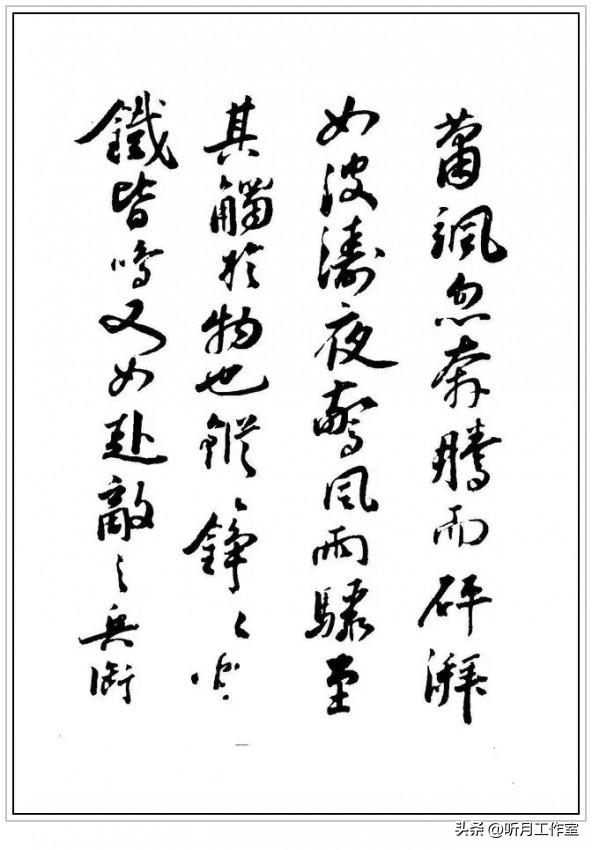 蕭颯忽奔騰而砰湃
如波濤夜驚風雨驟至
其觸於物也鏦〻錚〻金
鐵皆鳴又如赴敵之兵銜
头条 @听月工作室